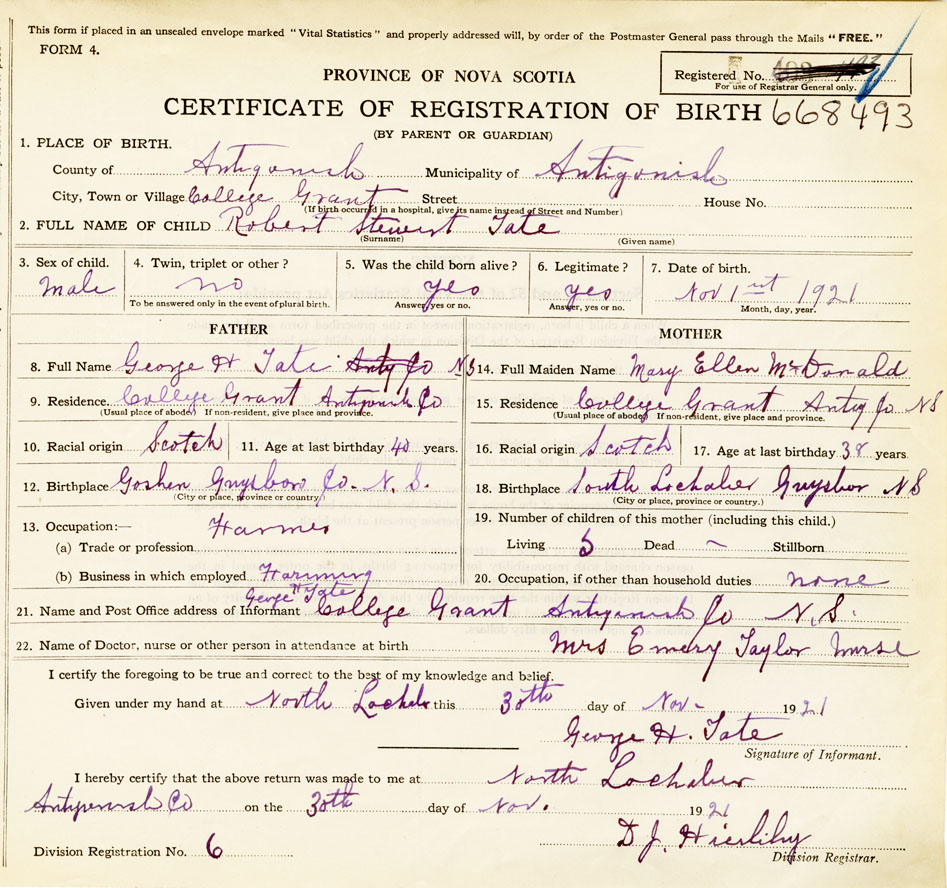 This form if placed in an unsealed envelope marked "Vital Statistics" and properly addressed will, by order of the Postmaster General pass through the Mails "FREE."
FORM 4.
PROVINCE OF NOVA SCOTIA
Registered No.
For use of Registrar General only.
CERTIFICATE OF REGISTRATION OF BIRTH 668493
(BY PARENT OR GUARDIAN)
1. PLACE OF BIRTH.
County of Antigonish Municipality of Antigonish
City, Town or Village College Grant Street House No.
(If birth occurred in a hospital, give its name instead of Street and Number)
2. FULL NAME OF CHILD Robert Stewart Tate
(Surname) (Given name)
3. Sex of child. 4. Twin, triplet or other? 5. Was the child born alive? 6. Legitimate? 7. Date of birth.
Male no yes yes Nov 1st 1921
To be answered only in the event of plural birth. Answer, yes or no. Answer, yes or no. Month, day, year.
FATHER
8. Full Name George H Tate Anty Co N S
9. Residence. College Grant Antigonish Co
(Usual place of abode) If non-resident, give place and province.
10. Racial origin Scotch 11. Age at last birthday 40 years.
12. Birthplace Goshen Guysboro Co. N. S.
(City or place, province or country)
13. Occupation:— Farmer
(a) Trade or profession
(b) Business in which employed Farming
MOTHER
14. Full Maiden Name Mary Ellen McDonald
15. Residence College Grant Antig Co. N S
(Usual place of abode) If non-resident, give place and province.
16. Racial origin Scotch 17. Age at last birthday 38 years.
18. Birthplace South Lochaber Guysbor N S
(City or place, province or country.)
19. Number of children of this mother (including this child.)
Living 5 Dead – Stillborn
20. Occupation, if other than household duties none
George H Tate
21. Name and Post Office address of Informant College Grant Antigonish Co N. S.
22. Name of Doctor, nurse or other person in attendance at birth Mrs Emery Taylor nurse
I certify the foregoing to be true and correct to the best of my knowledge and belief.
Given under my hand at North Lochaber this 30th day of Nov- 1921
George H. Tate
Signature of Informant.
I hereby certify that the above return was made to me at North Lochaber
Antigonish Co on the 30th day of Nov. 1921
D J. Hierlihy
Division Registrar.
Division Registration No. 6